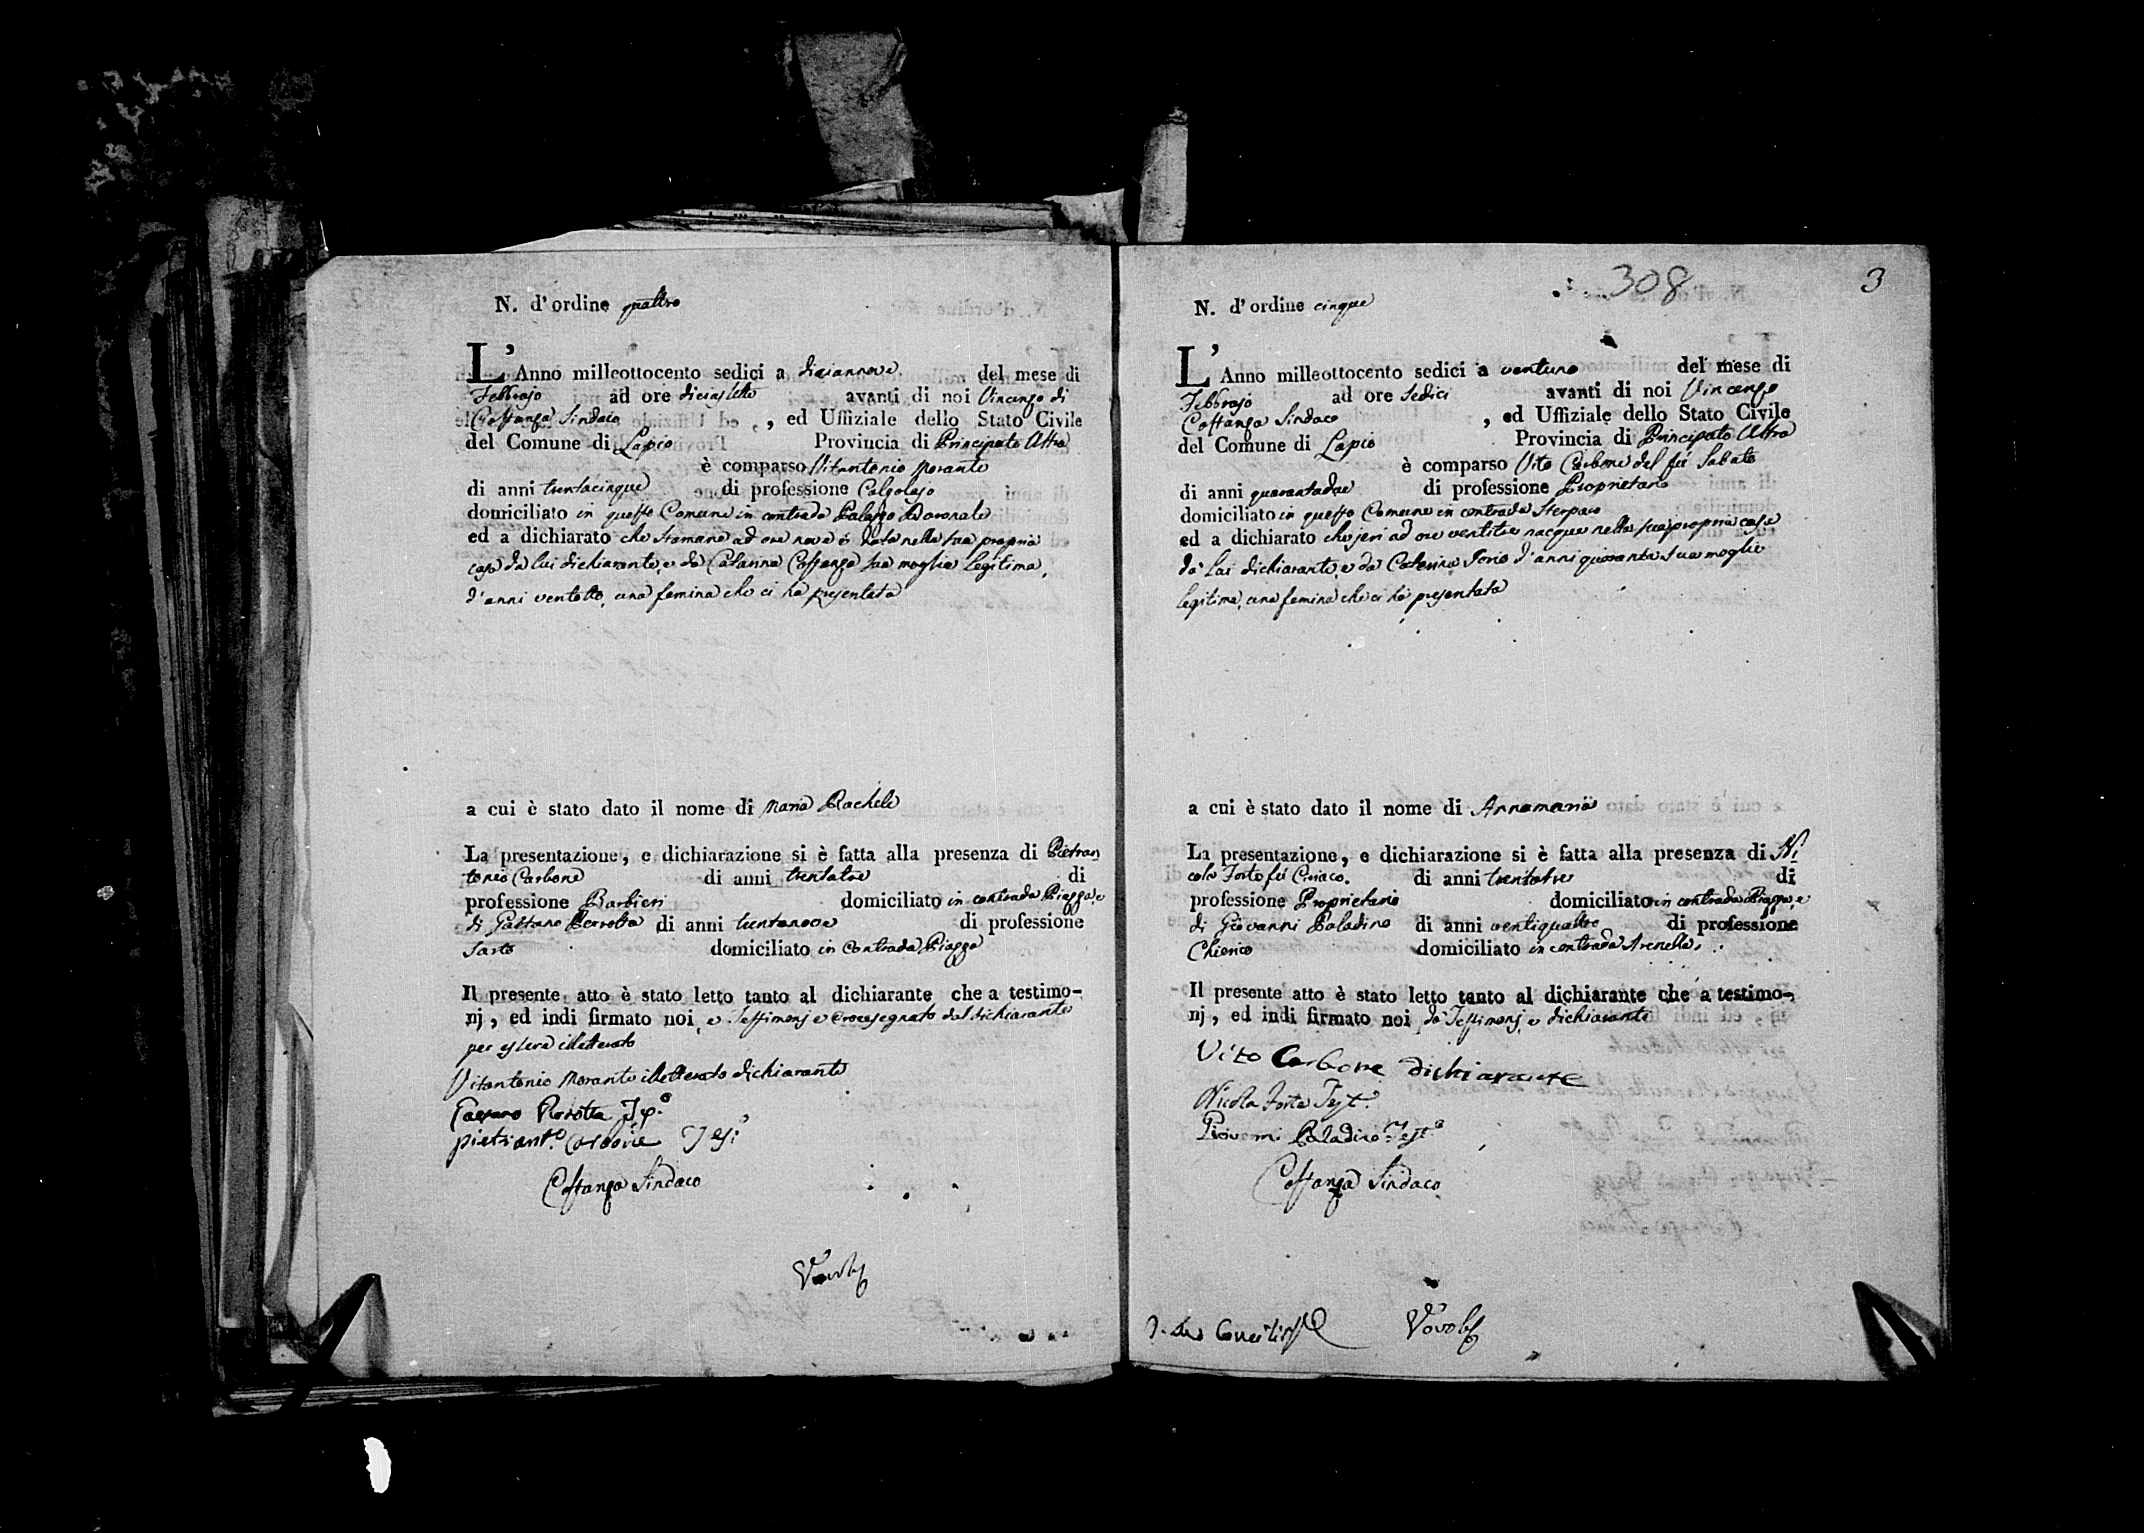 N. d'ordine quattro
L'Anno milleottocento sedici a diciannove del mese di
Febbrajo ad ore diciasette avanti di noi Vincenzo di
Costanza Sindaco, ed Uffiziale dello Stato Civile
del Comune di Lapio Provincia di Principato Ultra
è comparso Vitantonio Morante
di anni trentacinque di professione Calzolajo
domiciliato in questo Comune in contrada Palazzo Baronale
ed a dichiarato che stamane ad ore nove è nata nella sua propria
casa da lui dichiarante, e da Catarina Costanza sua moglie legitima,
d'anni ventotto, una femina che ci ha presentata
a cui è stato dato il nome di Maria Rachele
La presentazione, e dichiarazione si è fatta alla presenza di Pietran
tonio Carbone di anni trentatre di
professione Barbieri domiciliato in contrada Piazza, e
di Gaetano Perrotta di anni trentanove di professione
Sarto domiciliato in contrada Piazza
Il presente atto è stato letto tanto al dichiarante che a testimo-
nj, ed indi firmato noi, e Testimonj e crocesegnato dal dichiarante
per essere illetterato
Vitantonio Morante illetterato dichiarante
Gaetano Perotta
pietrant.o Carbone
Costanza Sindaco
308
3
N. d'ordine cinque
L'Anno milleottocento sedici a ventuno del mese di
Febbrajo ad ore sedici avanti di noi Vincenzo
Costanza Sindaco, ed Uffiziale dello Stato Civile
del Comune di Lapio Provincia di Principato Ultra
è comparso Vito Carbone del fù Sabato
di anni quarantadue di professione Proprietario
domiciliato in questo Comune in contrada Sterparo
ed a dichiarato che jeri ad ore ventitre nacque nella sua propria casa
da lui dichiarante, e da Catarina Iorio d'anni quaranta sua moglie
legitima, una femina che ci ha presentata
a cui è stato dato il nome di Annamaria
La presentazione, e dichiarazione si è fatta alla presenza di Ni
cola Forte fù Ciriaco. di anni trentatre di
professione Proprietario domiciliato in contrada Piazza, e
di Giovanni Paladino di anni ventiquattro di professione
Chierico domiciliato in contrada Arenella
Il presente atto è stato letto tanto al dichiarante che a testimo-
nj, ed indi firmato noi da Testimonj, e dichiarante
Vito Carbone dichiarante
Nicola Forte Test.
Giovanni Paladino Test.o
Costanza Sindaco